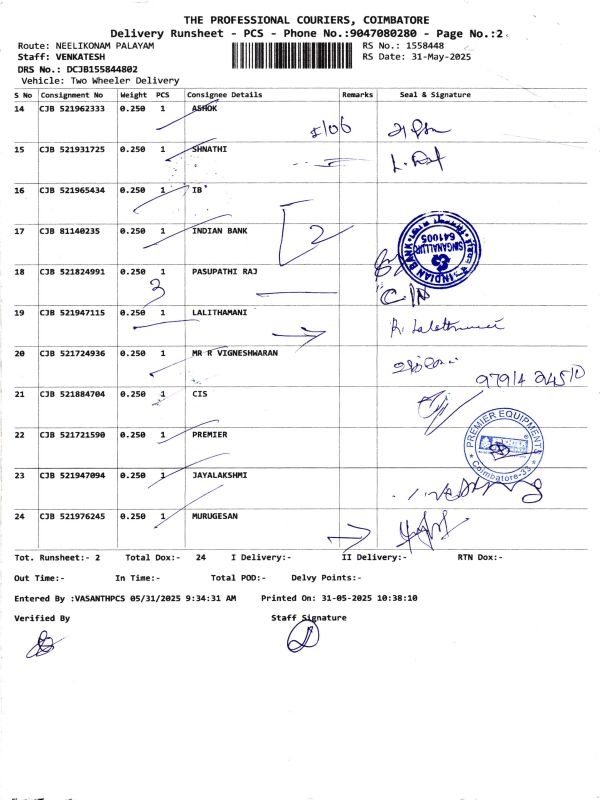 THE PROFESSIONAL COURIERS, COIMBATORE
Delivery Runsheet - PCS - Phone No.:9047080280 - Page No.:2
Route: NEELIKONAM PALAYAM RS No.: 1558448
Staff: VENKATESH RS Date: 31-May-2025
DRS No.: DCJB155844802
Vehicle: Two Wheeler Delivery
S No Consignment No Weight PCS Consignee Details Remarks Seal & Signature
14 CJB 521962333 0.250 1 ASHOK
15 CJB 521931725 0.250 1 SHNATHI
16 CJB 521965434 0.250 1 IB
2
17 CJB 81140235 0.250 1 INDIAN BANK
INDIAN BANK SINGANALLUR 641005
18 CJB 521824991 0.250 1 PASUPATHI RAJ
3
19 CJB 521947115 0.250 1 LALITHAMANI
20 CJB 521724936 0.250 1 MR R VIGNESHWARAN
97914 24510
21 CJB 521884704 0.250 1 CIS
22 CJB 521721590 0.250 1 PREMIER
PREMIER EQUIPMENTS
Coimbatore-33
23 CJB 521947094 0.250 1 JAYALAKSHMI
24 CJB 521976245 0.250 1 MURUGESAN
Tot. Runsheet:- 2 Total Dox:- 24 I Delivery:- II Delivery:- RTN Dox:-
Out Time:- In Time:- Total POD:- Delvy Points:-
Entered By :VASANTHPCS 05/31/2025 9:34:31 AM Printed On: 31-05-2025 10:38:10
Verified By Staff Signature